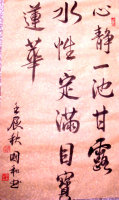 心靜一池甘露
水性定滿目寶
蓮華
壬辰秋國和書